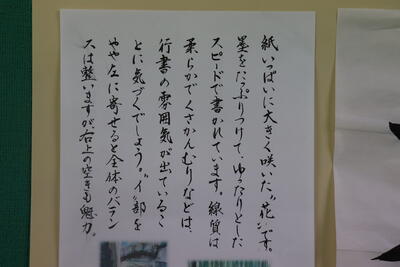 紙いっぱいに大きく咲いた〝花〟です。
墨をたっぷりつけて、ゆったりとした
スピードで書かれています。線質は
柔らかでくさかんむりなどは、
行書の雰囲気が出ているこ
とに気づくでしょう。〝イ〟部を
やや左に寄せると全体のバラン
スは整いますが、右上の空きも魅力。